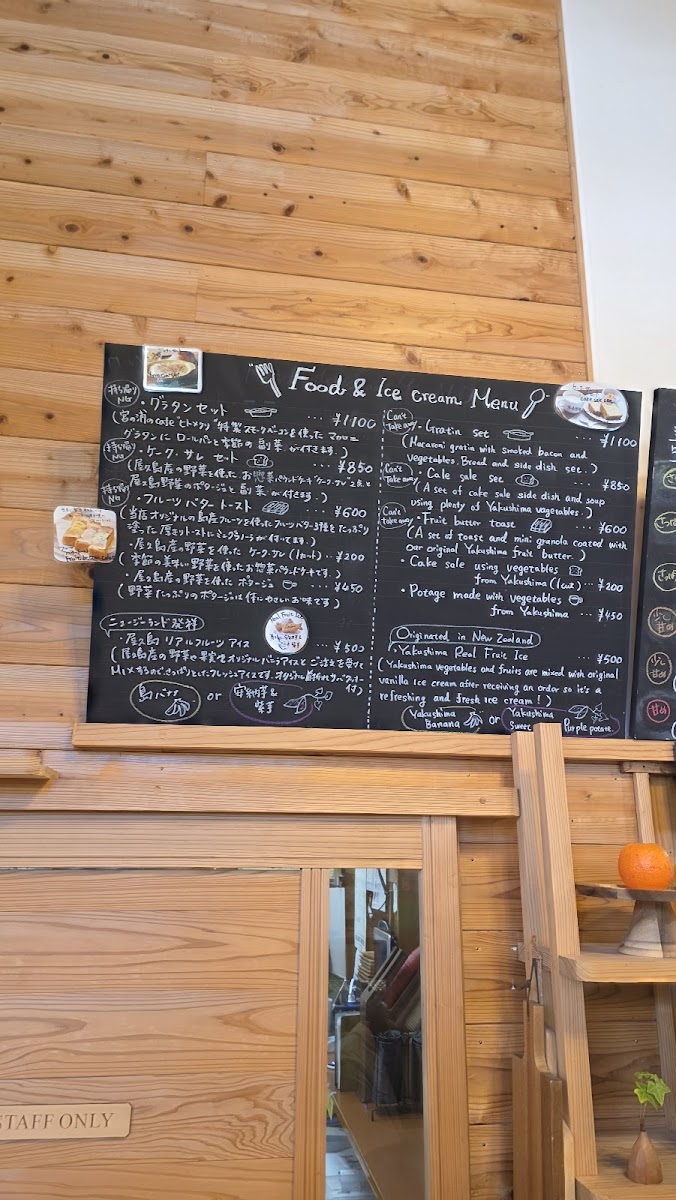 Food & Ice cream Menu
持ち帰りNG
・グラタン セット … ¥1100
(宮の浦のcafe"ヒトメクリ"特製スモークベーコンを使ったマカロニ
グラタンに ロールパンと季節の副菜が付きます。)
持ち帰りNG
・ケーク・サレ セット … ¥850
(屋久島産の野菜を使った お惣菜パウンドケーキ"ケーク・サレ"2点と
屋久島野菜のポタージュと副菜が付きます。)
持ち帰りNG
・フルーツバタートースト … ¥600
(当店オリジナルの島産フルーツを使ったフルーツバター3種をたっぷり
塗った厚切トーストにミニグラノーラが付いてます。)
・屋久島産の野菜を使った ケーク・サレ(1カット) … ¥200
(季節の美味しい野菜を使ったお惣菜パウンドケーキです。)
・屋久島の野菜を使った ポタージュ … ¥450
(野菜たっぷりのポタージュは体にやさしいお味です)
ニュージーランド発祥
・屋久島 リアルフルーツ アイス … ¥500
(屋久島産の野菜や果実をオリジナルバニラアイスと ご注文を受けて
MIXするので、さっぱりとしたフレッシュアイスです。
島バナナ or 安納芋&紫芋
Can't Take away
・Gratin set … ¥1100
(Macaroni gratin with smoked bacon and
vegetables. Bread and side dish set..)
Can't Take away
・Cale sale set … ¥850
(A set of cake sale side dish and soup
using plenty of Yakushima vegetables.)
Can't Take away
・Fruit butter toast … ¥600
(A set of toast and mini granola coated with
our original Yakushima fruit butter.)
・Cake sale using vegetables
from Yakushima (1cut) … ¥200
・Potage made with vegetables
from Yakushima … ¥450
Originated in New Zealand
・Yakushima Real Fruit Ice … ¥500
(Yakushima vegetables and fruits are mixed with original
vanilla ice cream after receiving an order so it's a
refreshing and fresh ice cream!)
Yakushima Banana or Yakushima Sweet Purple potate.
Real Fruit Ice
少し甘め
少し甘め
甘め
STAFF ONLY